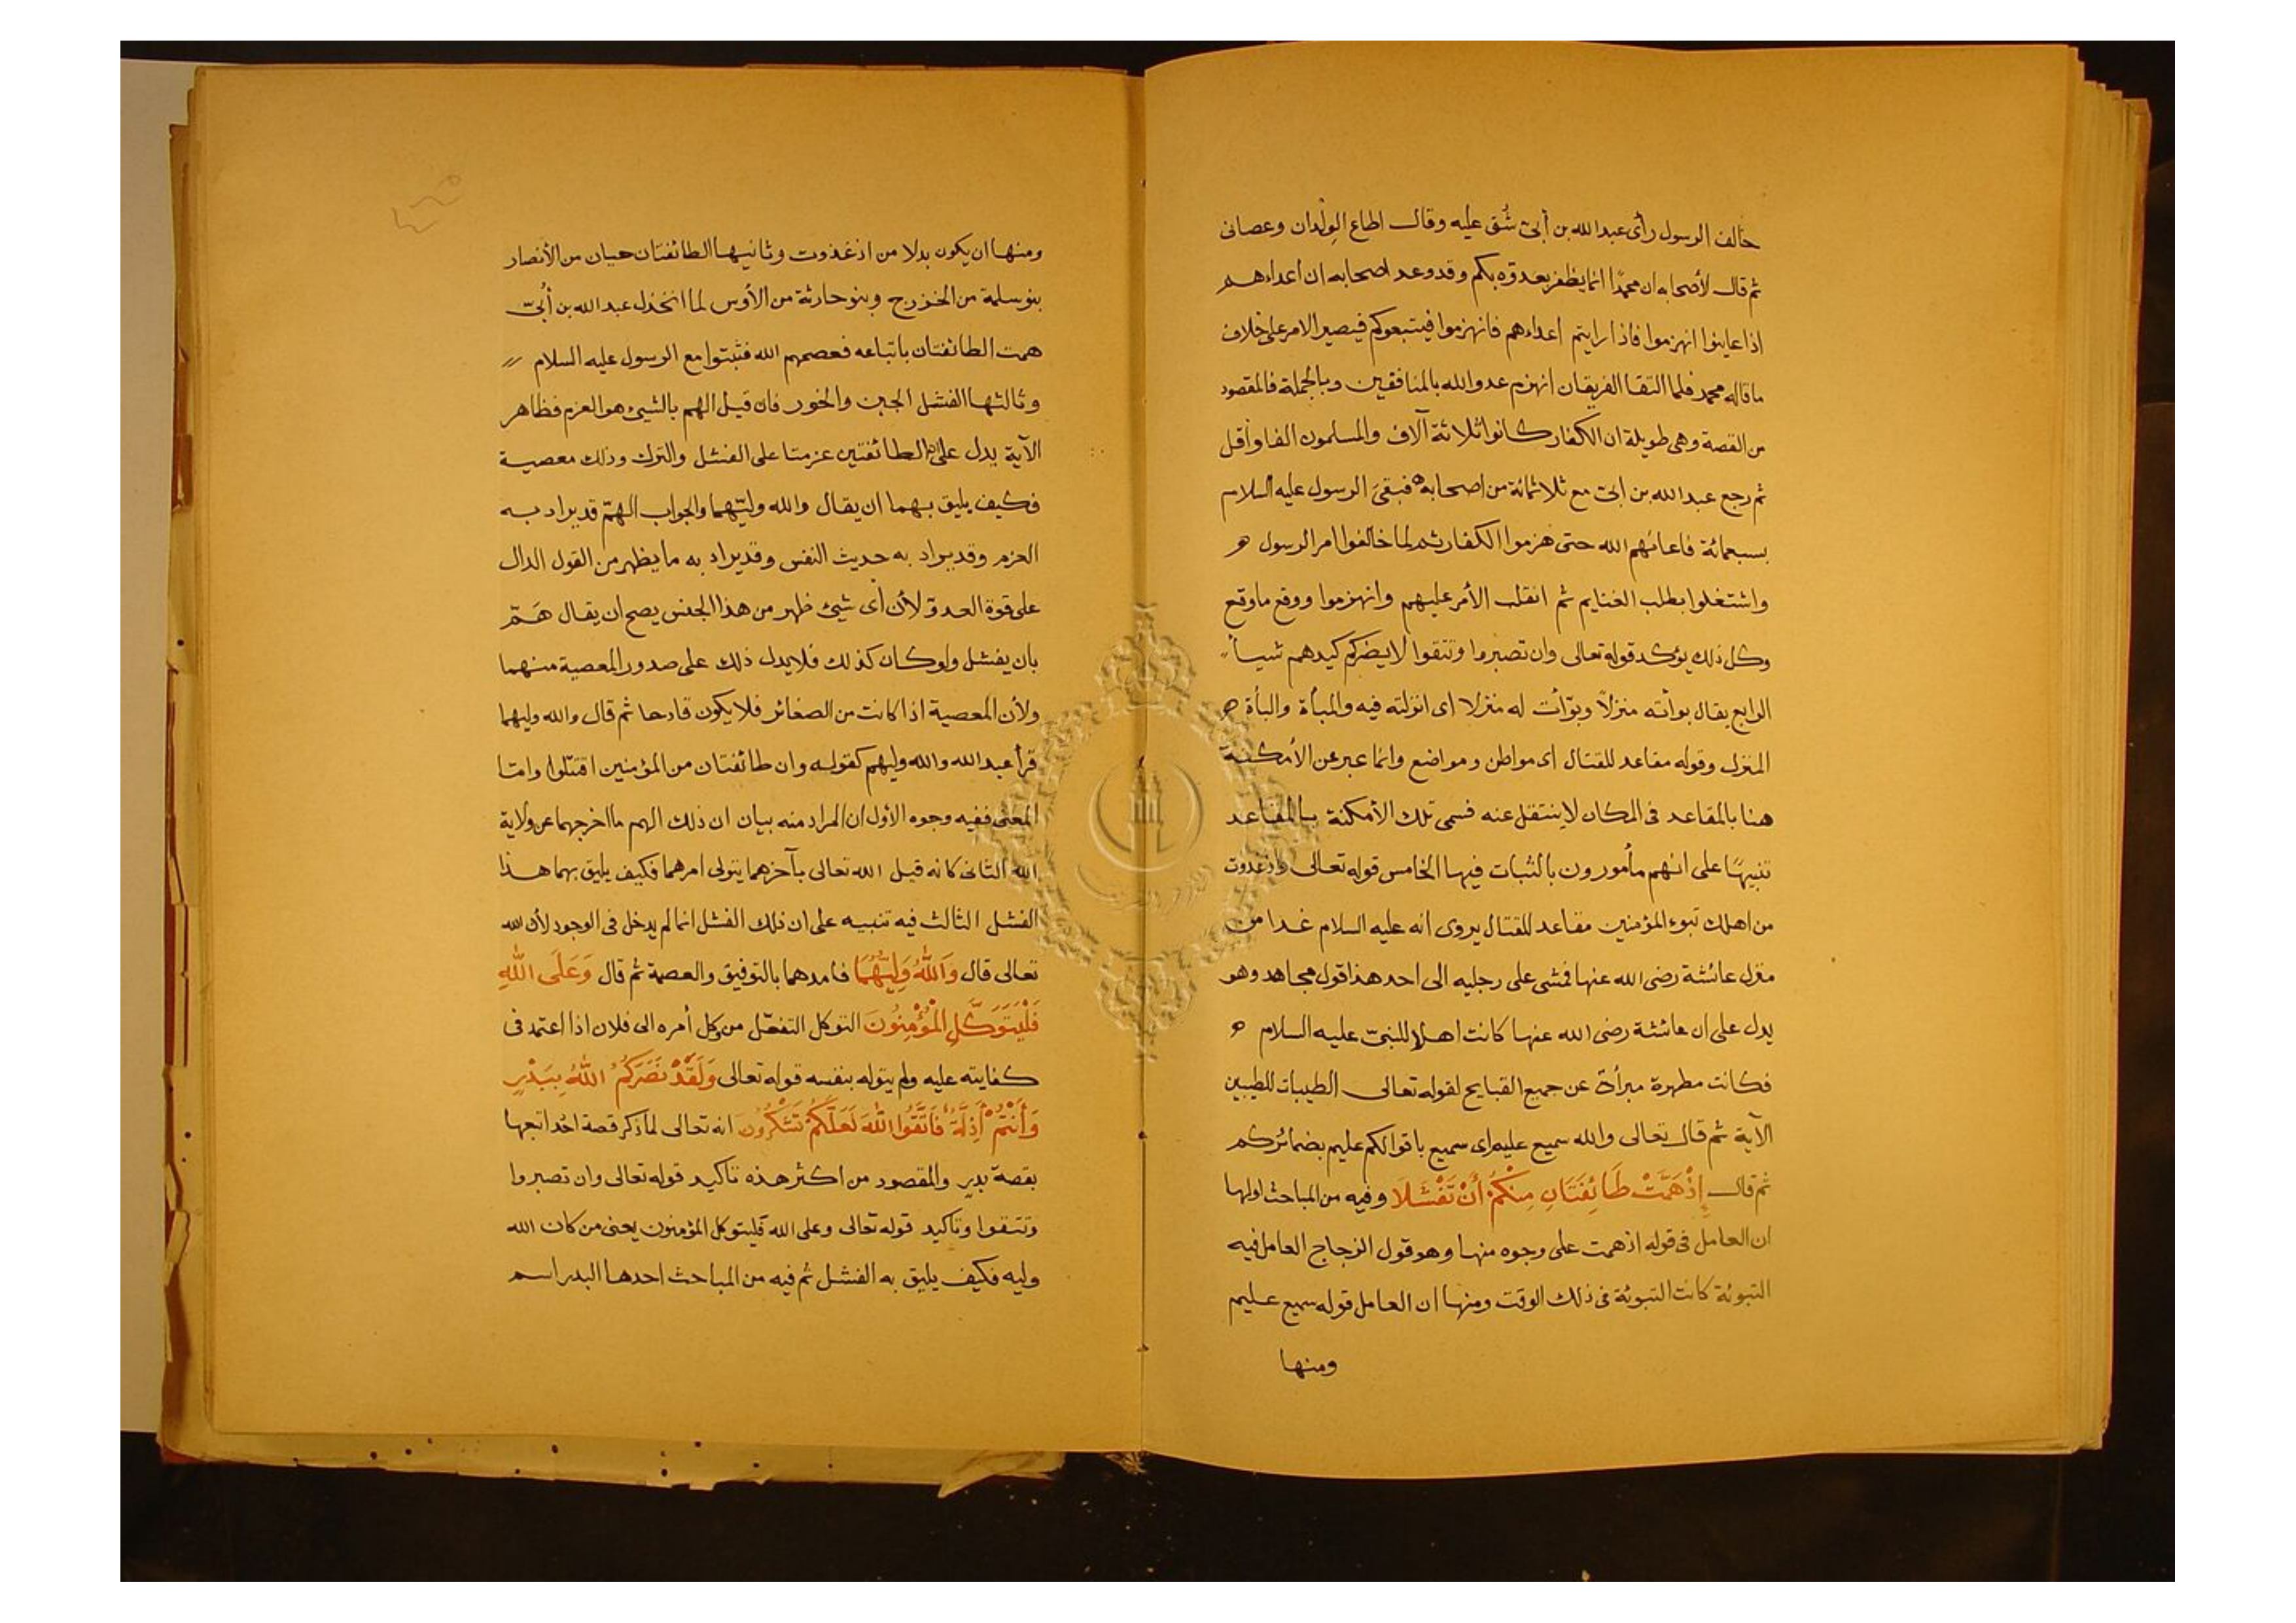 خالف الرسول رأى عبد الله بن أبىّ شُق عليه وقال اطاع الوِلْدان وعصانى
ثم قال لأصحابه ان محمدًا انما يظفر بعدوّه بكم وقد وعد اصحابه ان أعداءهم
اذا عاينوا انهزموا فاذا رايتم اعداءهم فانهزموا فيتبعوكم فيصير الامر على خلاف
ما قاله محمد فلما التقا الفريقان انهزم عدو الله بالمنافقين وبالجملة فالمقصود
من القصة وهى طويلة ان الكفار كانوا ثلاثة آلاف والمسلمون الفا وأقل
ثم رجع عبد الله بن ابىّ مع ثلاثمائة من اصحابه فبقىَ الرسول عليه السلام
بسبعمائة فاعانهم الله حتى هزموا الكفار ثم لما خالفوا امر الرسول
واشتغلوا بطلب الغنايم ثم انقلب الأمر عليهم وانهزموا ووقع ما وقع
وكل ذلك يؤكد قوله تعالى وان تصبروا وتتقوا لا يضركم كيدهم شيأ
الرابع يقال بوأته منزلاً وبوّأت له منزلا اى انزلته فيه والمبأة والبأة
المنزل وقوله مقاعد للقتال اى مواطن ومواضع وانما عبر عن الأمكنة
هنا بالمقاعد فى المكان لا ينتقل عنه فسمى تلك الأمكنة بالمقاعد
تنبيهًا على انهم مأمورون بالثبات فيها الخامس قوله تعالى واذ غدوت
من اهلك تبوء المؤمنين مقاعد للقتال يروى انه عليه السلام غدا من
منزل عائشة رضى الله عنها فمشى على رجليه الى احد هذا قول مجاهد وهو
يدل على ان عائشة رضى الله عنها كانت اهلا للنبىّ عليه السلام
فكانت مطهرة مبرأة عن جميع القبايح لقوله تعالى الطيبات للطيبين
الآية ثم قال تعالى والله سميع عليم اى سميع باقوالكم عليم بضمائركم
ثم قال إِذْ هَمَّتْ طَائِفَتَانِ مِنْكُمْ أَنْ تَفْشَلَا وفيه من المباحث اولها
ان العامل فى قوله اذ همت على وجوه منها وهو قول الزجاج العامل فيه
التبوئة كانت التبوئة فى ذلك الوقت ومنها ان العامل قوله سميع عليم
ومنها
ومنها ان يكون بدلا من اذ غدوت وثانيها الطائفتان حيان من الأنصار
بنو سلمة من الخزرج وبنو حارثة من الأوس لما انخذل عبد الله بن أُبىّ
همت الطائفتان باتباعه فعصمهم الله فثبتوا مع الرسول عليه السلام
وثالثها الفشل الجبن والخور فان قيل الهم بالشيئ هو العزم فظاهر
الآية يدل على ان الطائفتين عزمتا على الفشل والترك وذلك معصية
فكيف يليق بهما ان يقال والله وليّهما والجواب الهمّ قد يراد به
العزم وقد يراد به حديث النفس وقد يراد به ما يظهر من القول الدال
على قوة العدوّ لأن أى شيئ ظهر من هذا الجنس يصح ان يقال هَمّ
بان يفشل ولو كان كذلك فلا يدل ذلك على صدور المعصية منهما
ولأن المعصية اذا كانت من الصغائر فلا يكون قادحا ثم قال والله وليهما
قرأ عبد الله والله وليهم كقوله وان طائفتان من المؤمنين اقتتلوا وامّا
المعنى ففيه وجوه الأول ان المراد منه بيان ان ذلك الهم ما اخرجهما عن ولاية
الله الثانى كانه قيل الله تعالى بآخرهما يتولى امرهما فكيف يليق بهما هذا
الفشل الثالث فيه تنبيه على ان ذلك الفشل انما لم يدخل فى الوجود لأن الله
تعالى قال وَاللهُ وَلِيُّهُمَا فامدهما بالتوفيق والعصمة ثم قال وَعَلَى اللهِ
فَلْيَتَوَكَّلِ الْمُؤْمِنُونَ التوكل التفعّل من وكل أمره الى فلان اذا اعتمد فى
كفايته عليه ولم يتوله بنفسه قوله تعالى وَلَقَدْ نَصَرَكُمُ اللهُ بِبَدْرٍ
وَأَنْتُمْ أَذِلَّةٌ فَاتَّقُوا اللهَ لَعَلَّكُمْ تَشْكُرُونَ انه تعالى لما ذكر قصة احُد اتبعها
بقصة بدرٍ والمقصود من اكثر هذه تاكيد قوله تعالى وان تصبروا
وتتقوا وتاكيد قوله تعالى وعلى الله فليتوكل المؤمنون يعنى من كان الله
وليه فكيف يليق به الفشل ثم فيه من المباحث احدها البدر اسم